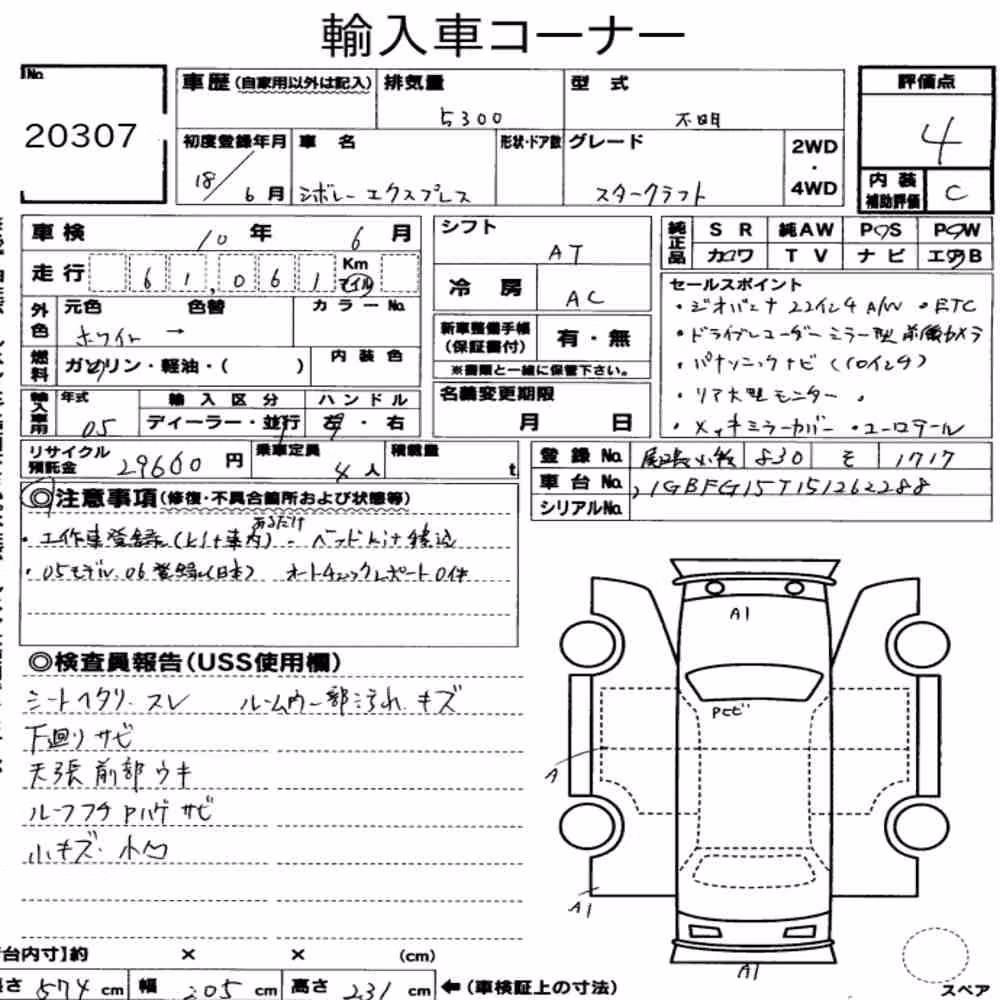 輸入車コーナー
No.
20307
車歴(自家用以外は記入)
排気量
5300
型式
不明
評価点
4
初度登録年月
18/6月
車名
シボレーエクスプレス
形状・ドア数
グレード
スタークラフト
2WD
・
4WD
内装
補助評価
C
車検 10年 6月
走行 61,061 Km マイル
外色
元色 色替 カラーNo.
ホワイト →
燃料
ガソリン・軽油・( )
内装色
輸入車用
年式
05
輸入区分
ディーラー・並行
ハンドル
左・右
リサイクル
預託金 29600 円
乗車定員 4人
積載量 t
シフト
AT
冷房
AC
新車整備手帳
(保証書付)
有・無
※書類と一緒に保管下さい。
名義変更期限
月 日
純正品
SR 純AW PS PW
カワ TV ナビ エアB
セールスポイント
・ジオバンナ22インチA/W ・ETC
・ドライブレコーダーミラー型前後カメラ
・パナソニックナビ(10インチ)
・リア大型モニター
・メッキミラーカバー ・ユーロテール
登録No. 尾張小牧 830 そ 1717
車台No. 1GBFG15T151262288
シリアルNo.
◎注意事項(修復・不具合箇所および状態等)
あるだけ
・工作車登録(キット車内) ベッドキット積込
・05モデル 06登録(日本) オートチェックレポート0件
◎検査員報告(USS使用欄)
シートヘタリ スレ ルーム内一部汚れ キズ
下廻りサビ
天張前部ウキ
ルーフフチPハゲサビ
小キズ・小凹
A1
Pとビ
A
A1
A1
スペア
台内寸】約 × × (cm)
長さ 574 cm 幅 205 cm 高さ 231 cm ←(車検証上の寸法)